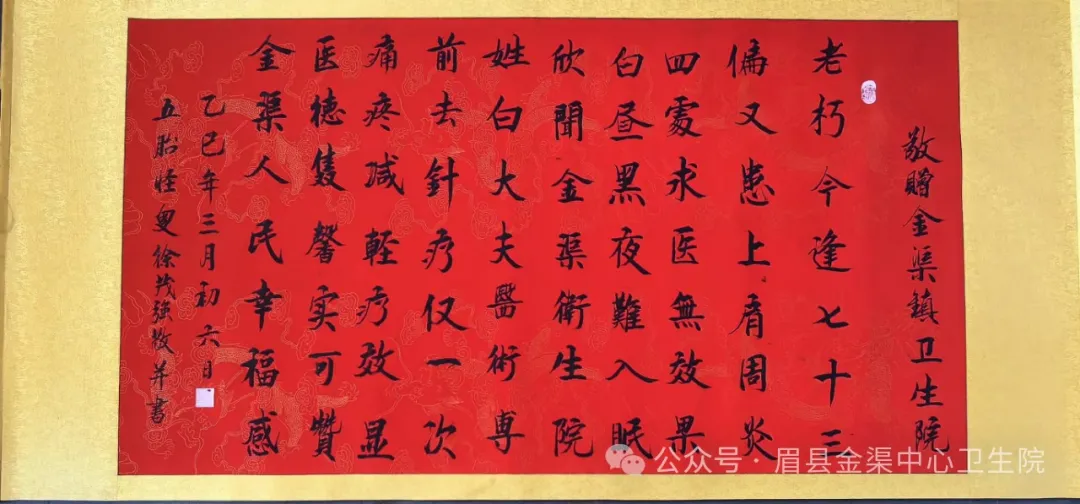 敬贈金渠镇卫生院
老朽今逢七十三
偏又患上肩周炎
四處求医無效果
白昼黑夜難入眠
欣聞金渠衛生院
姓白大夫醫術専
前去針疗仅一次
痛疼减輕疗效显
医德雙馨实可贊
金渠人民幸福感
乙巳年三月初六日
五胎怪叟徐茂强敬并書
公众号·眉县金渠中心卫生院